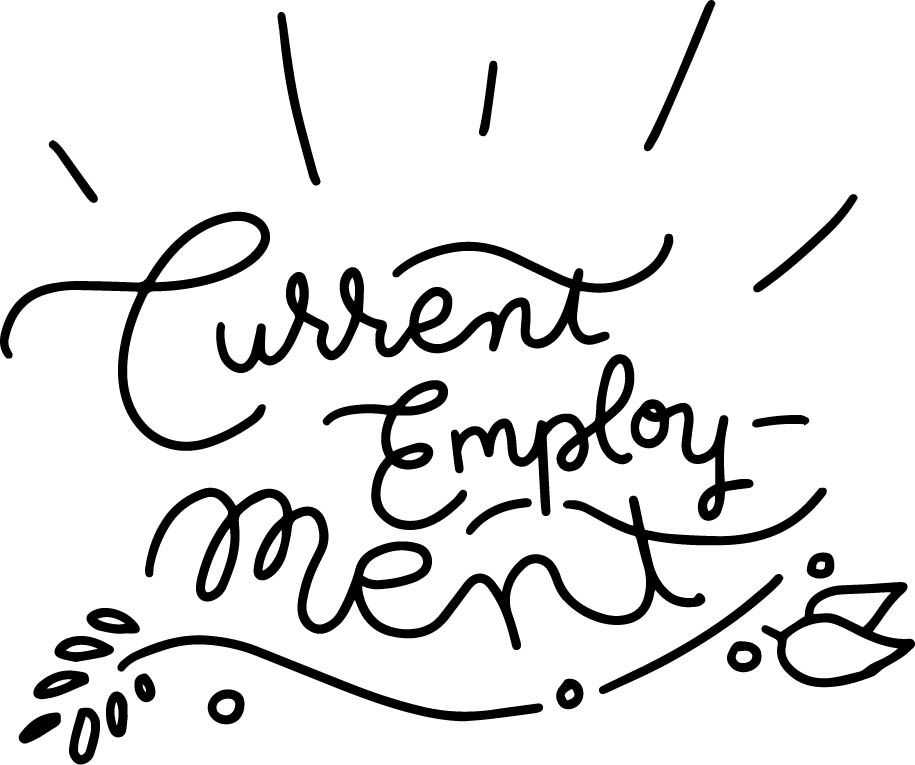 Current
Employ-
ment